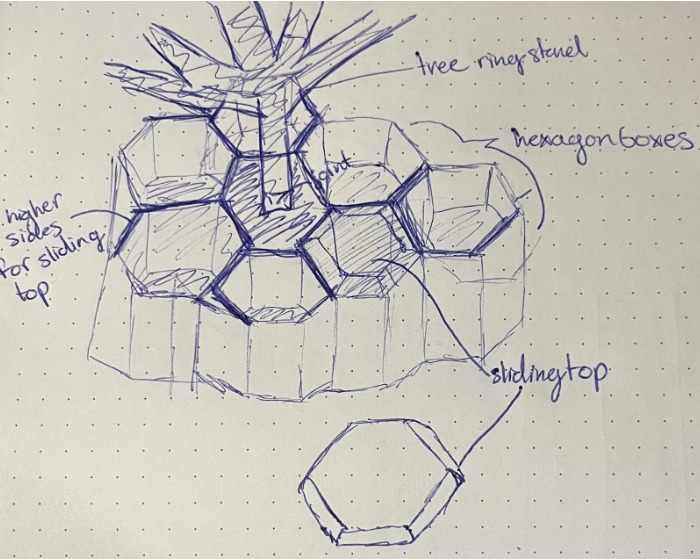 tree ring stand
hexagon boxes
joint
higher
sides
for sliding
top
sliding top